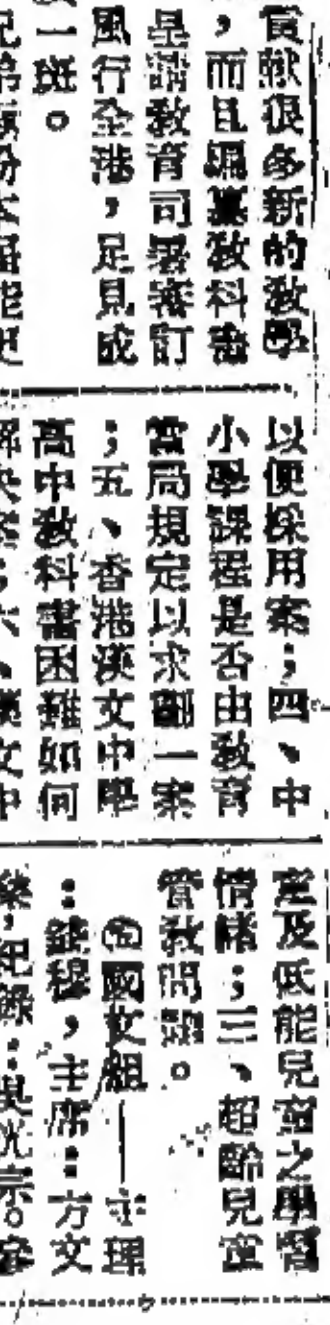 貢獻很多新的教學
，而且編纂教科書
呈請教育司署審訂
風行全港，足見成
一斑。
以便採用案；四、中
小學課程是否由教育
當局規定以求劃一案
；五、香港漢文中學
高中教科書困難如何
解決案；六、漢文中
童及低能兒童之學習
情緒；三、超齡兒童
管教問題。
國文組——主理
：錢穆，主席：方文
紀錄：吳光宗。